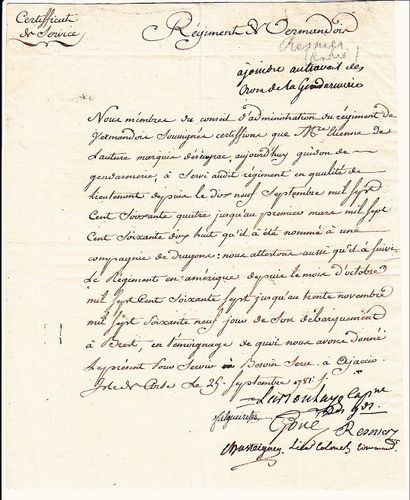 Certifficat
de Service
Régiment de Vermandois
Resnier
ajoindre au travail des
de la Gendarmerie
Nous membres du conseil d'administration du régiment de
Vermandois Soussignés certiffions que Mre Etienne de
Lauture marquis aujourdhuy guidon de
gendarmerie, à Servi audit régiment en qualité de
Lieutenant depuis le dix neuf Septembre mil Sept
Cent Soixante quatre jusqu'au premier mars mil Sept
Cent Soixante dix huit qu'il à été nommé à une
compagnie de dragons: nous attestons aussi qu'il à suivi
Le Régiment en amérique depuis le mois d'octobre
mil Sept Cent Soixante Sept jusqu'au trente novembre
mil Sept Soixante neuf jour de Son débarquement
à Brest, en témoignage de quoi nous avons donné
Le présent Pour Servir Besoin Sera. à Ajaccio
Isle de Corse Le 25 Septembre 1781
Resnier
Lieut Colonel command